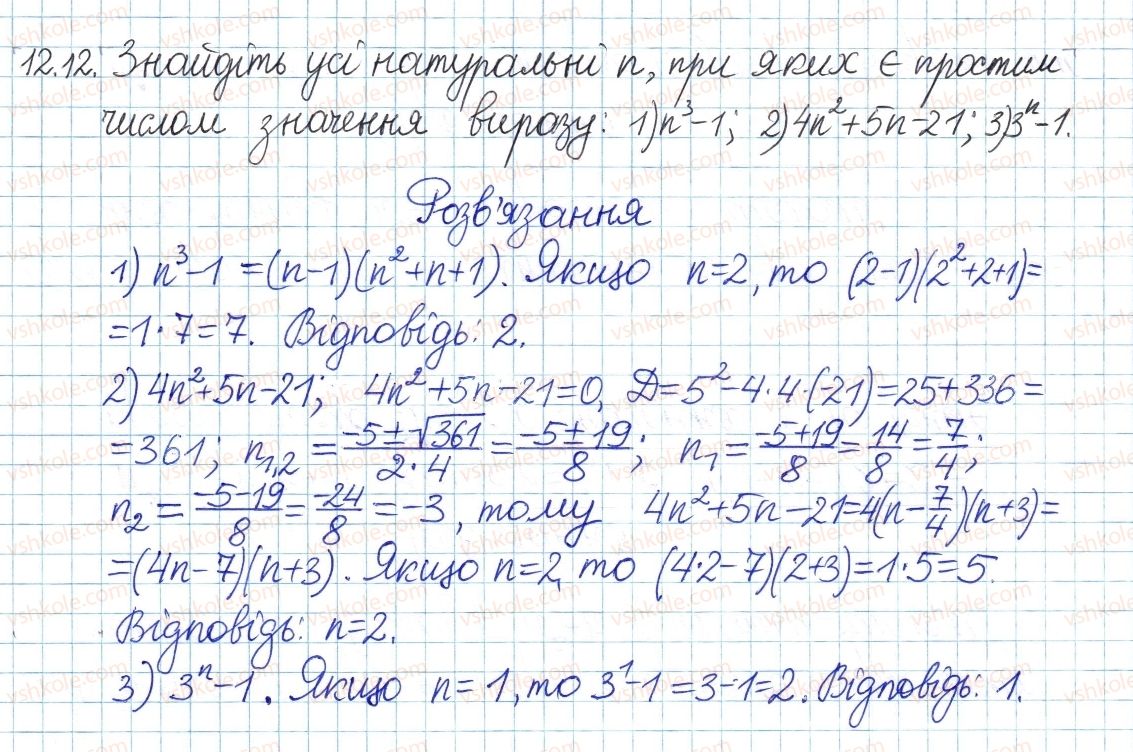 12.12. Знайдіть усі натуральні n, при яких є простим
числом значення виразу: 1) n³-1; 2) 4n²+5n-21; 3) 3ⁿ-1.
Розв'язання
1) n³-1 = (n-1)(n²+n+1). Якщо n=2, то (2-1)(2²+2+1)=
=1·7=7. Відповідь: 2.
2) 4n²+5n-21; 4n²+5n-21=0, D=5²-4·4·(-21)=25+336=
=361; n₁,₂ = (-5±√361)/(2·4) = (-5±19)/8; n₁ = (-5+19)/8 = 14/8 = 7/4;
n₂ = (-5-19)/8 = -24/8 = -3, тому 4n²+5n-21=4(n-7/4)(n+3)=
=(4n-7)(n+3). Якщо n=2, то (4·2-7)(2+3)=1·5=5.
Відповідь: n=2.
3) 3ⁿ-1. Якщо n=1, то 3¹-1=3-1=2. Відповідь: 1.